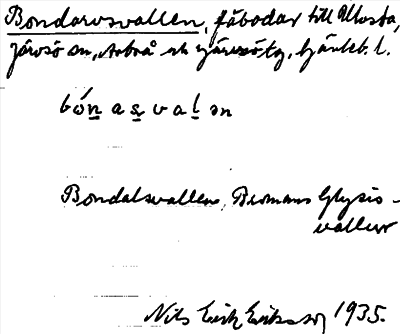 Bondarvsvallen, fäbodar till Ullosta,
Järvsö sn, Arbrå och Järvsö tg, Gävleb. l.
bón a s v a l ən
Bondalsvallens, Bromans Glysis-
vallur
Nils Erik Eriksson 1935.